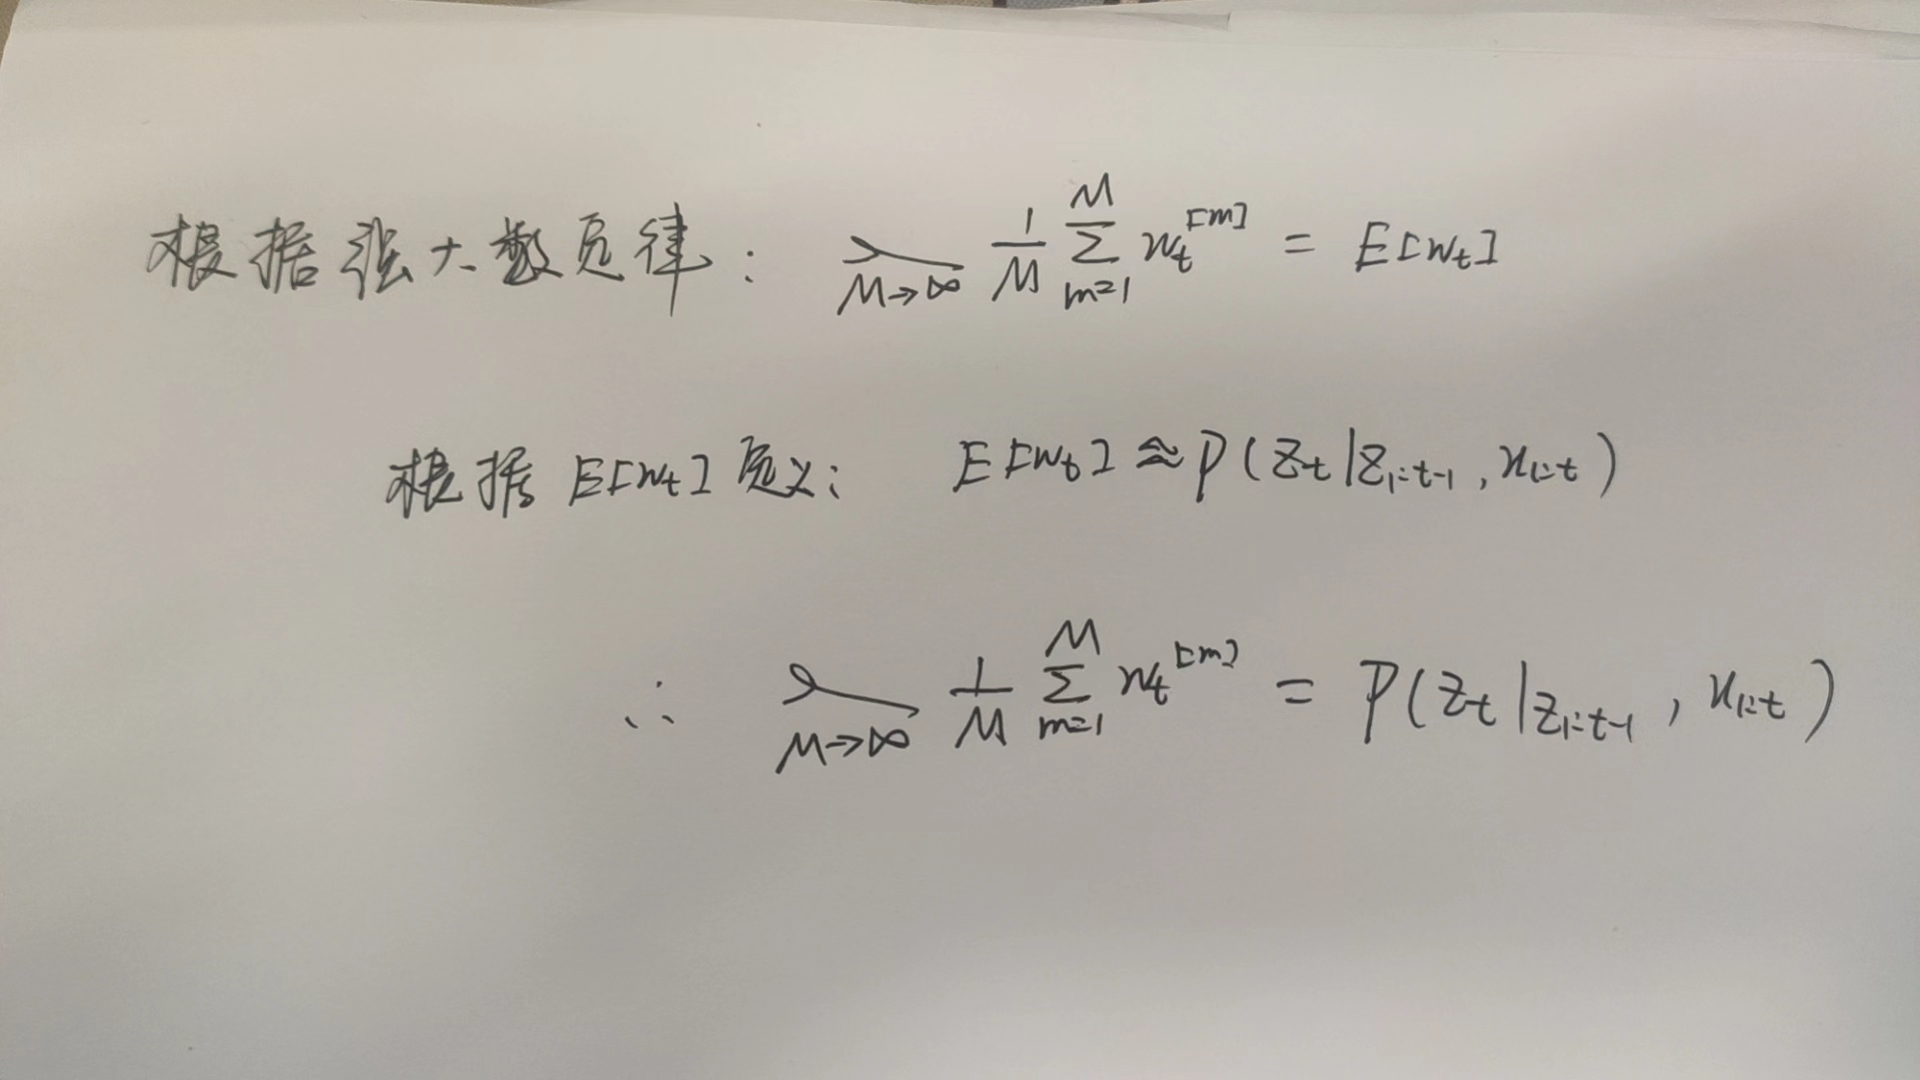 根据强大数定律: lim M→∞ 1/M Σ_{m=1}^{M} w_t^{[m]} = E[w_t]
根据 E[w_t] 定义: E[w_t] ≈ P(z_t|z_{1:t-1}, x_{1:t})
∴ lim M→∞ 1/M Σ_{m=1}^{M} w_t^{[m]} = P(z_t|z_{1:t-1}, x_{1:t})